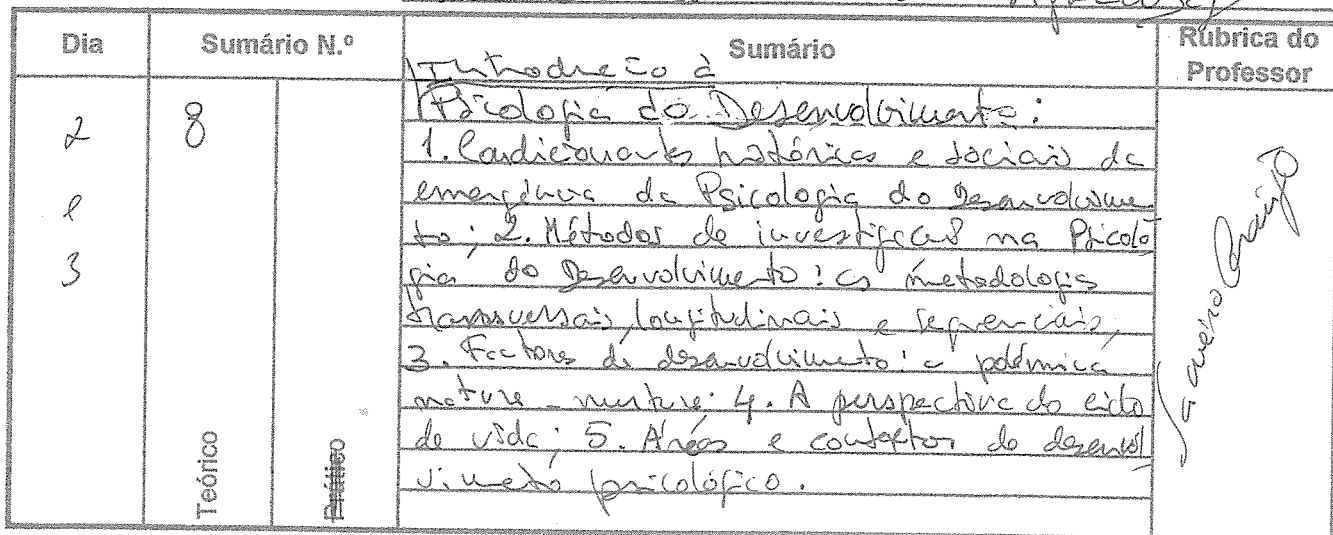 Dia
Sumário N.º
Sumário
Rubrica do
Professor
Introdução à
Psicologia do Desenvolvimento:
1. Condicionantes históricos e sociais da
emergência da Psicologia do Desenvolvimen
to; 2. Métodos de investigação na Psicoló
gia do Desenvolvimento: as metodologias
transversais, longitudinais e sequenciais,
3. Factores de desenvolvimento: a polémica
nature - nurture; 4. A perspectiva do ciclo
de vida; 5. Áreas e contextos do desenvol
vimento psicológico.
2
e
3
8
Teórico
Prático
Araújo